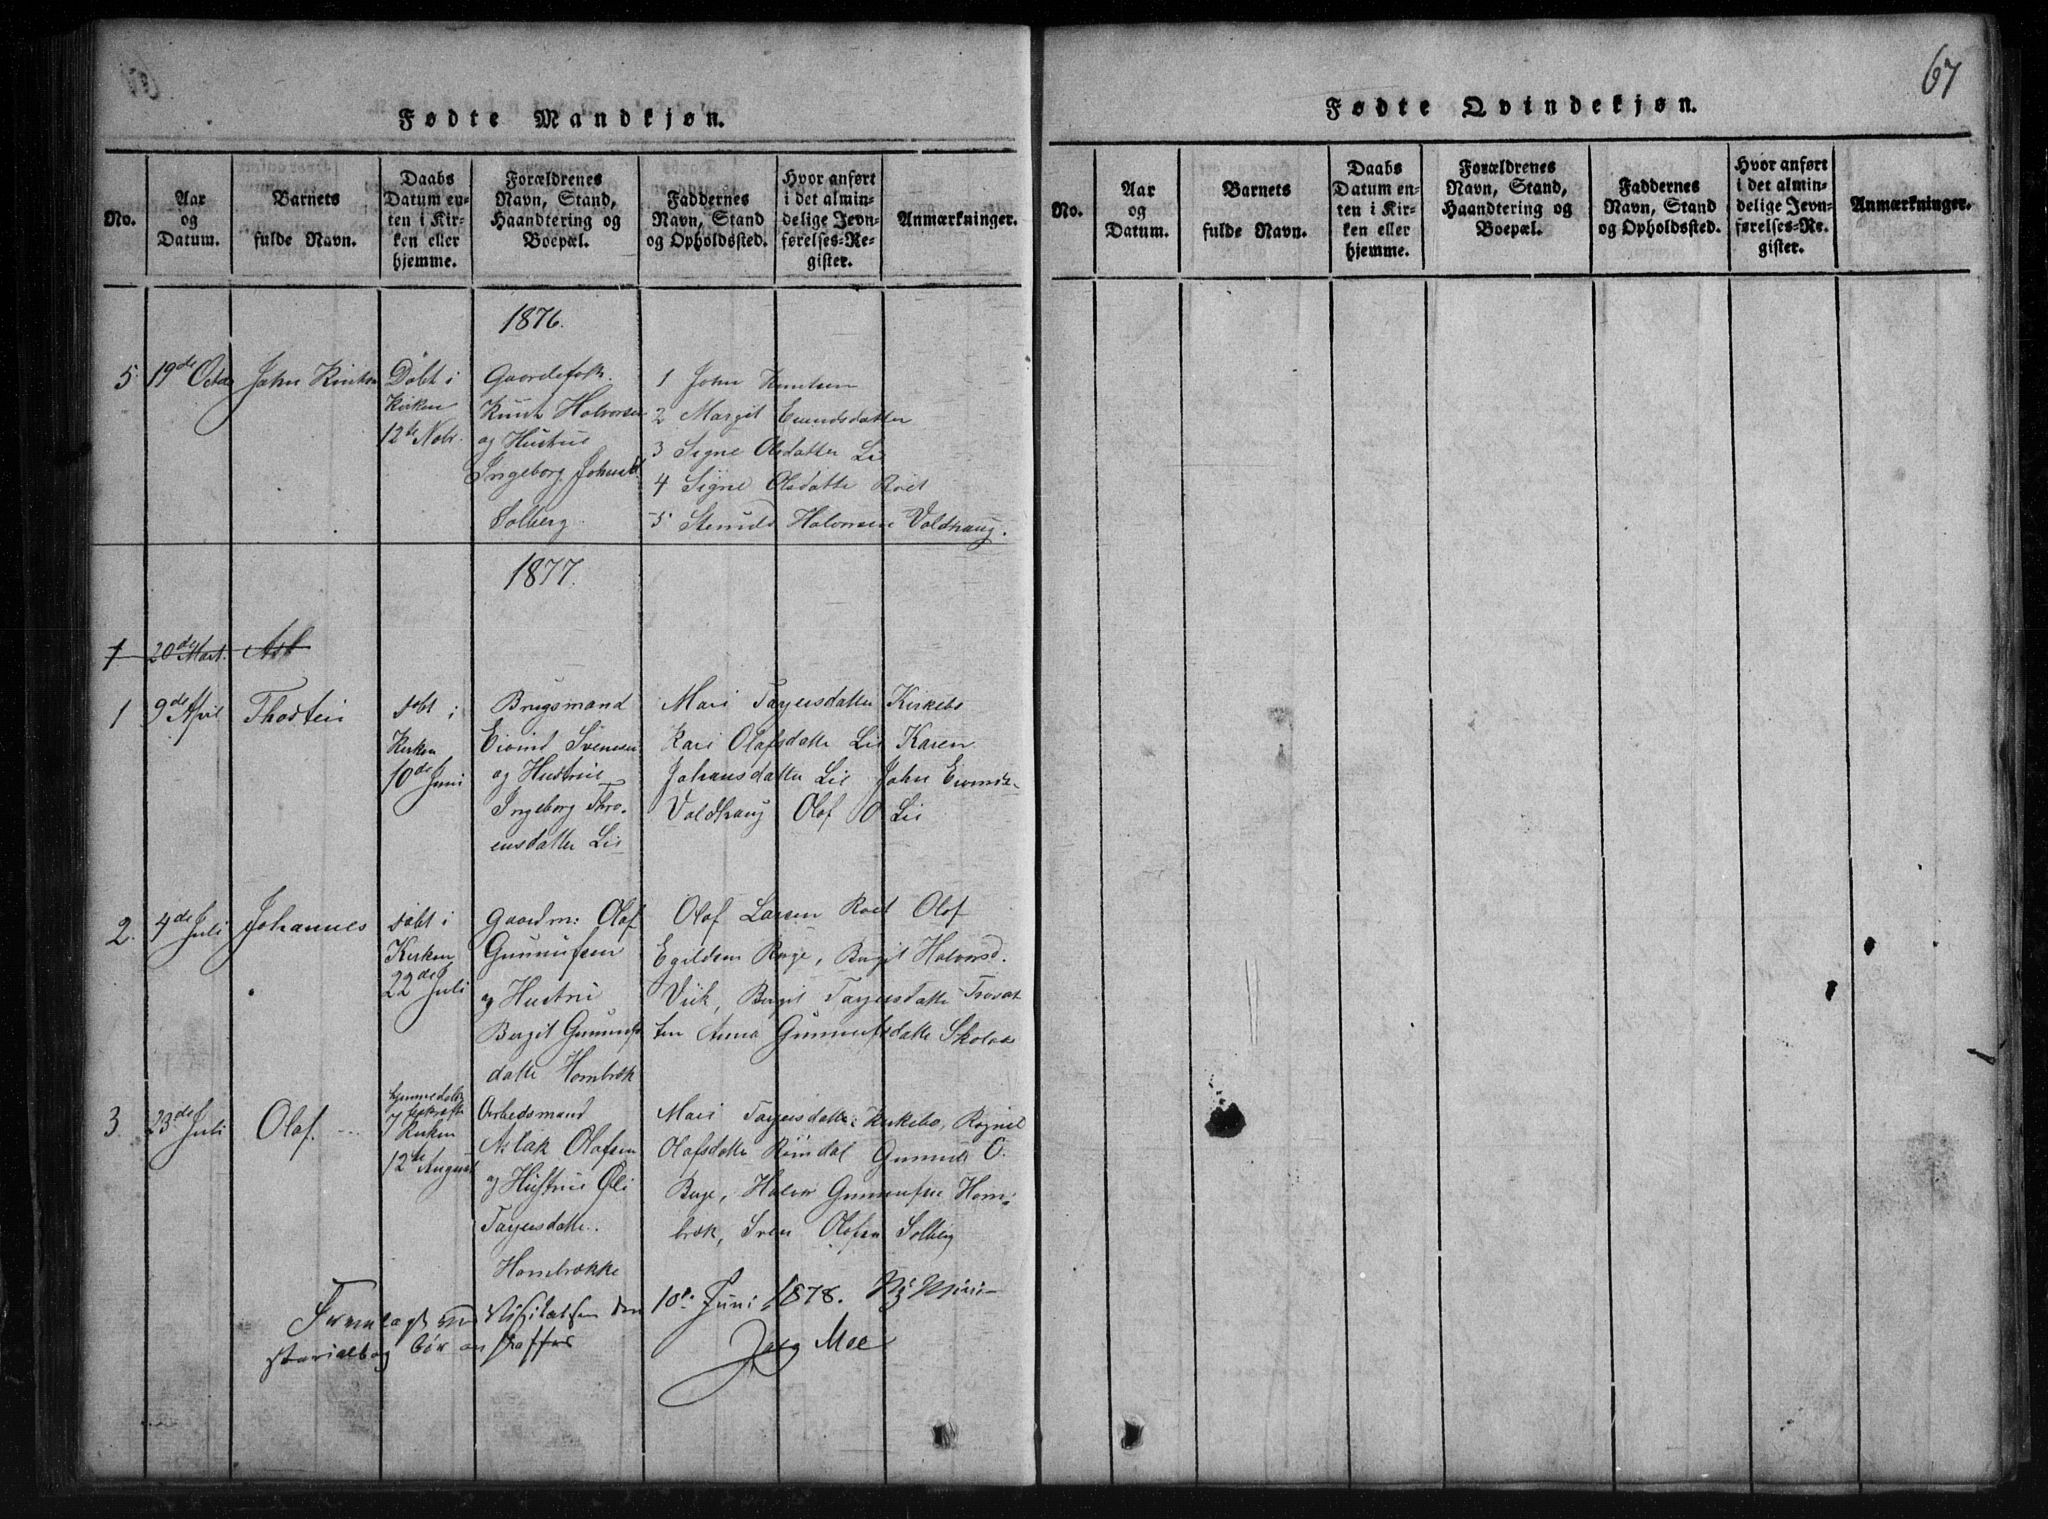 67
Fødte Mandkjøn.
No.
Aar
og
Datum.
Barnets
fulde Navn.
Daabs
Datum en-
ten i Kir-
ken eller
hjemme.
Forældrenes
Navn, Stand,
Haandtering og
Boepæl.
Faddernes
Navn, Stand
og Opholdssted.
Hvor anført
i det almin-
delige Jevn-
førelses-Re-
gister.
Anmærkninger.
1876.
5. 19de Octo
John
Døbt i
Kirken
12te Nobr.
Gaardefolk
Knut Halvorsen
og Hustrue
Ingeborg Johnsd
Solberg
1 John Knudsen
2 Margit Evindsdatter
3 Signe Olsdatter Lie
4 Signe Olsdatte Roet
5 Halvorsen Voldhaug.
1877.
1 20de Mart. Ast
1 9de April
Thostein
døbt i
Kirken
10de Juni
Brugsmand
Eivind Svensen
og Hustrue
Ingeborg Thro-
ensdatter Lie
Mari Tarjersdatte Kirkebo
Kari Olafsdatte Lie Karen
Johansdatter Lie John Eivinds-
Voldhaug Olaf O Lie
2. 4de Juli
Johannes
døbt i
Kirken
22de Juli
Gaardm: Olaf
Gunnufsen
og Hustru
Bergit Gunnufs
datte Hornbræk
Olaf Larsen Roet Olof
Egildsen Berge, Bergit Halvorsd.
Viik, Bergit Tarjersdatte Trovat
ten Anna Gunnufsdatte Skolaas
3. 23de Juli
Olaf.
hjemmedøbt
bekræft
I Kirken
12te August
Arbedsmand
Aslak Olafsen
og Hustrue
Tarjersdatte.
Hornbrække
Mari Tarjersdatte Kirkebo, Ragnil
Olafsdatte Gunnuf O.
Berge, Halvor Gunnufsen Horn-
bræk, Sven Olafsen Solberg
Fremlagt ved Visitatsen den 10de Juni 1878. Ny Mini-
sterialbog bør anskaffes
Jørg Moe
Fødte Qvindekjøn.
No.
Aar
og
Datum.
Barnets
fulde Navn.
Daabs
Datum en-
ten i Kir-
ken eller
hjemme.
Forældrenes
Navn, Stand,
Haandtering og
Boepæl.
Faddernes
Navn, Stand
og Opholdssted.
Hvor anført
i det almin-
delige Jevn-
førelses-Re-
gister.
Anmærkninger.